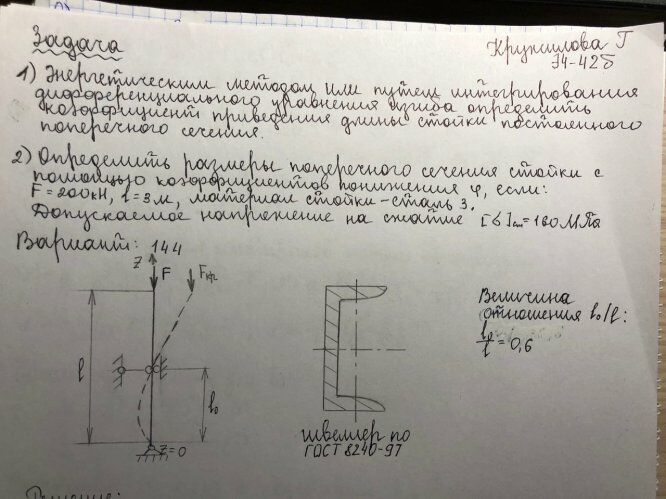 Задача
Крупилова Г
Э4-42б
1) Энергетическим методом или путем интегрирования
дифференциального уравнения изгиба определить
коэффициент приведения длины стойки постоянного
поперечного сечения.
2) Определить размеры поперечного сечения стойки с
помощью коэффициентов понижения φ, если:
F=200кН, l=3м, материал стойки-сталь 3.
Допускаемое напряжение на сжатие [σ]сж=160МПа
Вариант: 144
z
F
Fкр
l
l₀
z=0
швеллер по
ГОСТ 8240-97
Величина
отношения l₀/l:
l₀/l=0,6
Решение: